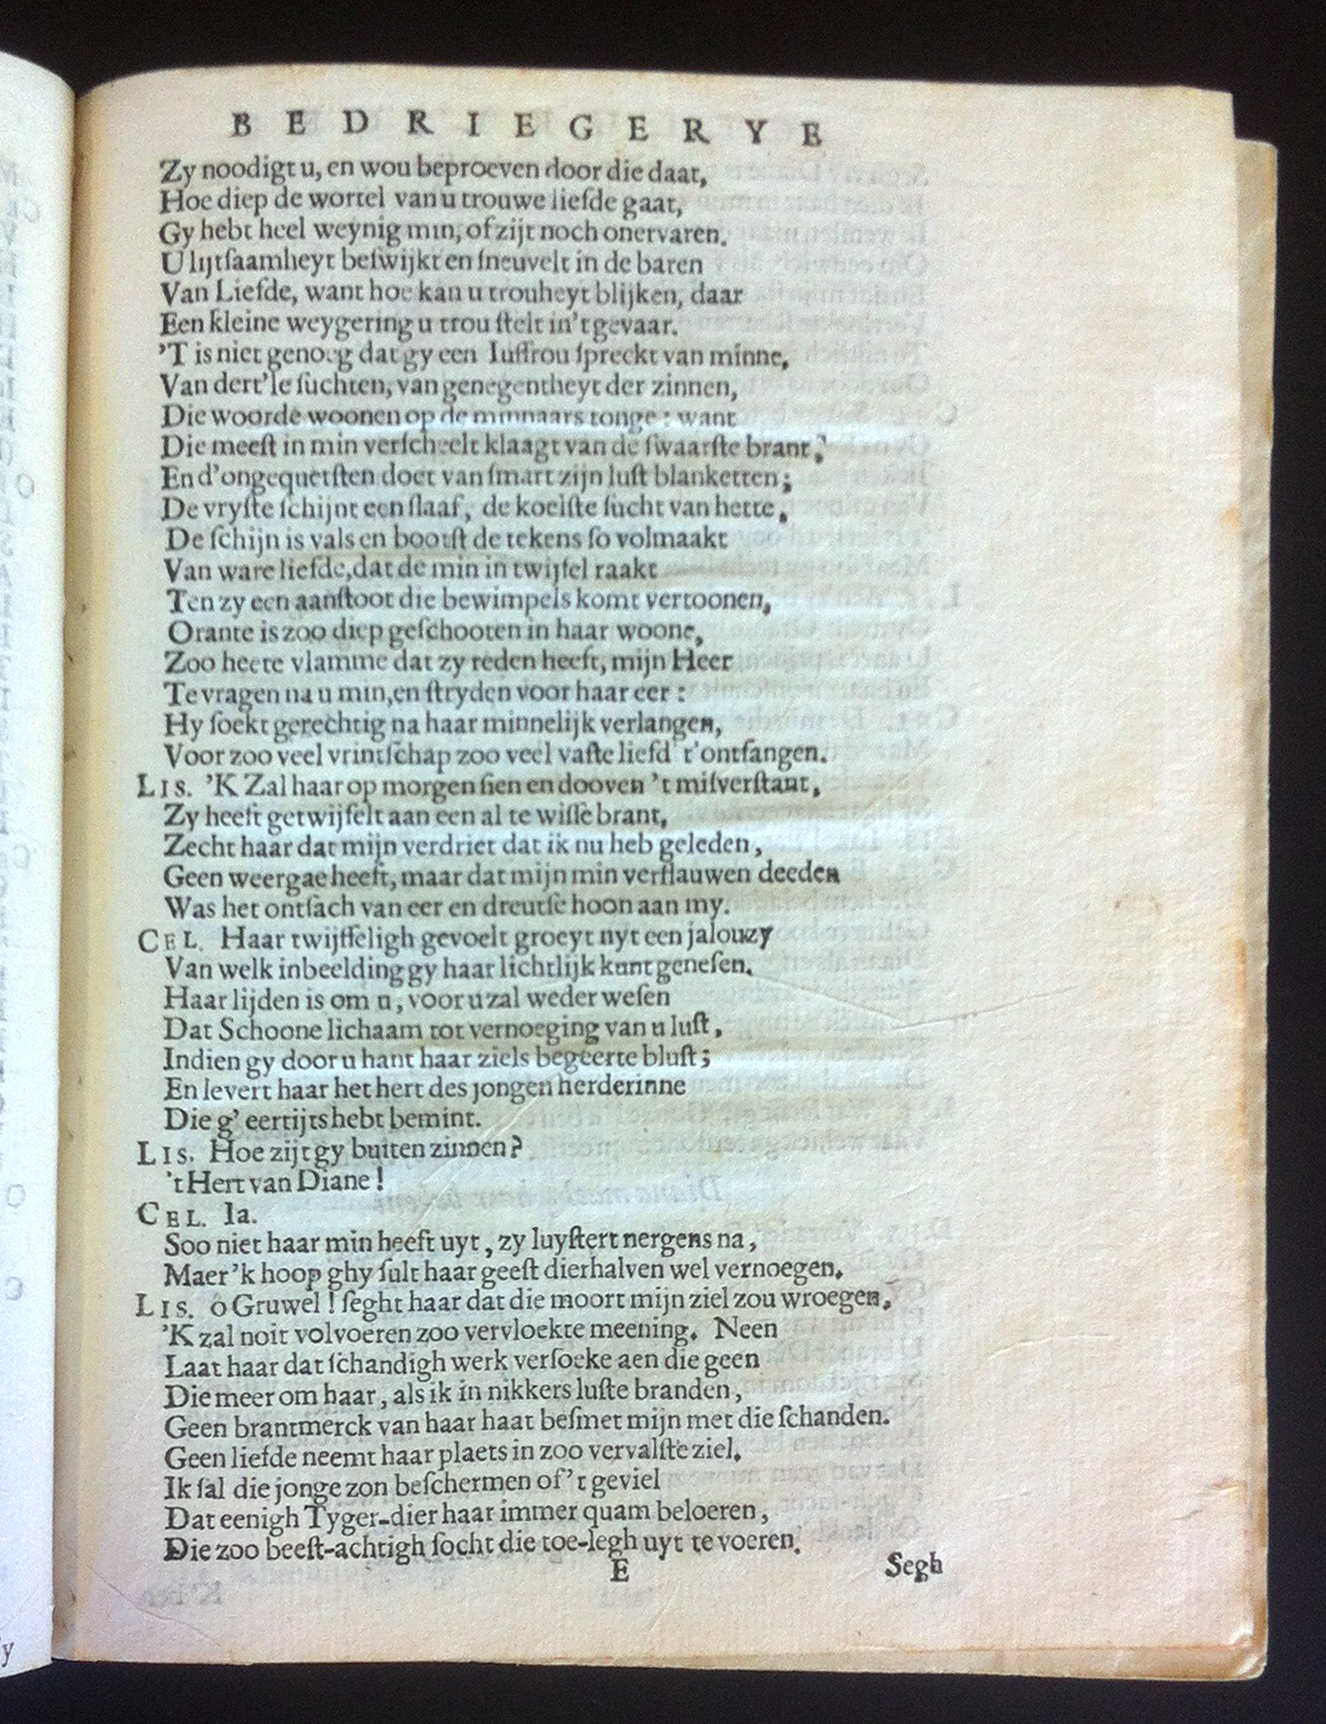 BEDRIEGERYE
Zy noodigt u, en wou beproeven door die daat,
Hoe diep de wortel van u trouwe liefde gaat,
Gy hebt heel weynig min, of zijt noch onervaren.
U lijtſaamheyt beſwijkt en ſneuvelt in de baren
Van Liefde, want hoe kan u trouheyt blijken, daar
Een kleine weygering u trou ſtelt in't gevaar.
'T is niet genoeg dat gy een Iuffrou ſpreekt van minne,
Van dert'le ſuchten, van genegentheyt der zinnen,
Die woorde woonen op de minnaars tonge: want
Die meeſt in min verſcheelt klaagt van de ſwaarſte brant,
En d'ongequetſten doet van ſmart zijn luſt blanketten;
De vryſte ſchijnt een ſlaaf, de koelſte ſucht van hette,
De ſchijn is vals en bootſt de tekens ſo volmaakt
Van ware liefde, dat de min in twijfel raakt
Ten zy een aanſtoot die bewimpels komt vertoonen,
Orante is zoo diep geſchooten in haar woone,
Zoo heete vlamme dat zy reden heeft, mijn Heer
Te vragen na u min, en ſtryden voor haar eer:
Hy ſoekt gerechtig na haar minnelijk verlangen,
Voor zoo veel vrintſchap zoo veel vaſte liefd' t'ontfangen.
LIS. 'K Zal haar op morgen ſien en dooven 't miſverſtant,
Zy heeft getwijfelt aan een al te wiſſe brant,
Zecht haar dat mijn verdriet dat ik nu heb geleden,
Geen weergae heeft, maar dat mijn min verflauwen deeden
Was het ontſach van eer en dreutſe hoon aan my.
CEL. Haar twijffeligh gevoelt groeyt nyt een jalouzy
Van welk inbeelding gy haar lichtlijk kunt geneſen.
Haar lijden is om u, voor u zal weder weſen
Dat Schoone lichaam tot vernoeging van u luſt,
Indien gy door u hant haar ziels begeerte bluſt;
En levert haar het hert des jongen herderinne
Die g' eertijts hebt bemint.
LIS. Hoe zijt gy buiten zinnen?
't Hert van Diane!
CEL. Ia.
Soo niet haar min heeft uyt, zy luyſtert nergens na,
Maer 'k hoop ghy ſult haar geeſt dierhalven wel vernoegen.
LIS. ô Gruwel! ſeght haar dat die moort mijn ziel zou wroegen,
'K zal noit volvoeren zoo vervloekte meening. Neen
Laat haar dat ſchandigh werk verſoeke aen die geen
Die meer om haar, als ik in nikkers luſte branden,
Geen brantmerck van haar haat beſmet mijn met die ſchanden.
Geen liefde neemt haar plaets in zoo vervalſte ziel.
Ik ſal die jonge zon beſchermen of 't geviel
Dat eenigh Tyger-dier haar immer quam beloeren,
Die zoo beeſt-achtigh ſocht die toe-legh uyt te voeren.
E
Segh